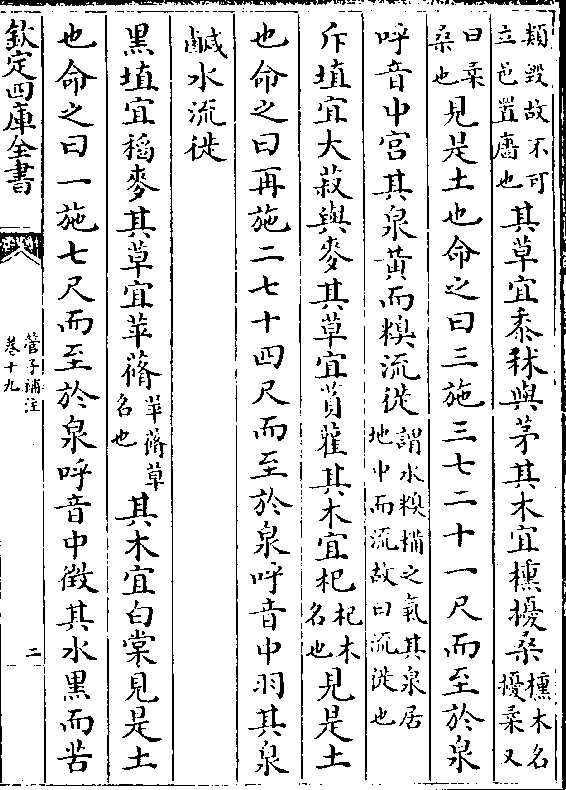 類毀故不可
立邑置廧也
其草宜黍秫與茅其木宜櫄擾桑
櫄木名
擾柔又
曰柔
桑也
見是土也命之曰三施三七二十一尺而至於泉
呼音中宫其泉黄而糗流徙
謂水糗糒之氣其泉居
地中而流故曰流徙也
斥埴宜大菽與麥其草宜萯雚其木宜杞
杞木
名也
見是土
也命之曰再施二七十四尺而至於泉呼音中羽其泉
鹹水流徙
黑埴宜稻麥其草宜苹蓨
苹蓨草
名也
其木宜白棠見是土
也命之曰一施七尺而至於泉呼音中徵其水黑而苦
欽定四庫全書
管子補注
卷十九
二